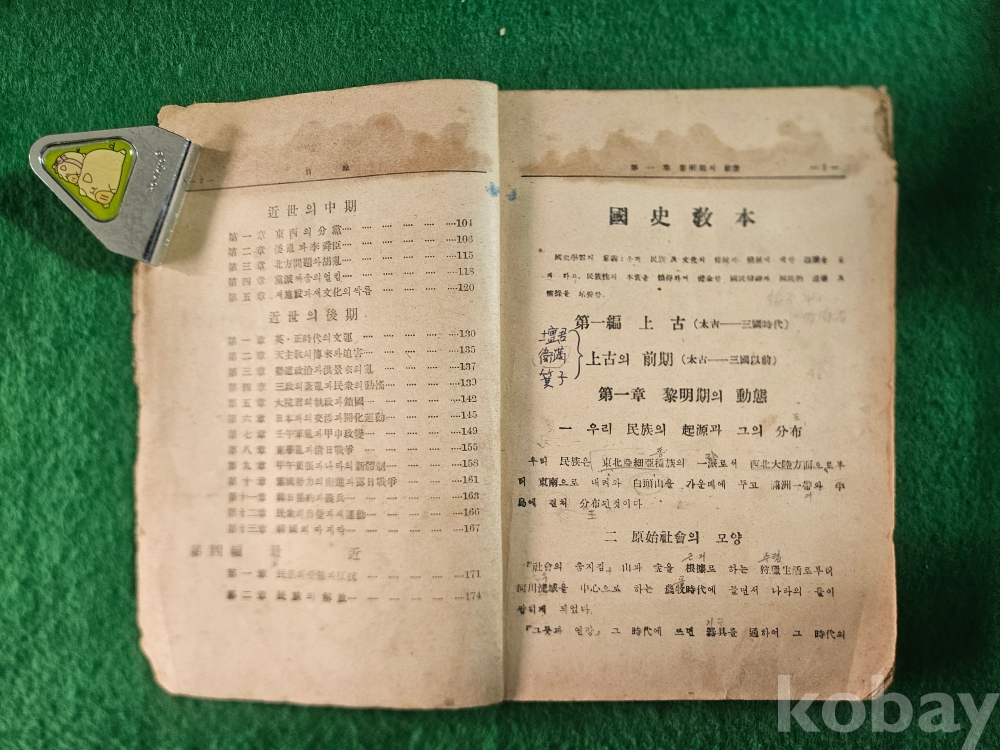 目
近世의 中期
第一章 東西의 分黨 104
第二章 倭亂과 李舜臣 106
第三章 北方問題와 胡亂 115
第四章 118
第五章 120
近世의 後期
第一章 英·正時代의 文運 130
第二章 天主敎의 傳來와 迫害 135
第三章 勢道政治와 洪景來의 亂 137
第四章 三政의 紊亂과 民衆의 動搖 139
第五章 大院君의 執政과 鎖國 142
第六章 日本과의 交涉과 開化運動 145
第七章 壬午軍亂과 甲申政變 149
第八章 東學亂과 淸日戰爭 155
第九章 甲午更張과 나라의 新體制 158
第十章 露國勢力의 南進과 露日戰爭 161
第十一章 義兵 163
第十二章 民衆의 運動 166
第十三章 167
第四編 最近
第一章 171
第二章 民族의 解放 174
第一章 黎明期의 動態 —1—
國史敎本
第一編 上古 (太古——三國時代)
壇君
衛滿
箕子
上古의 前期 (太古——三國以前)
第一章 黎明期의 動態
一 우리 民族의 起源과 그의 分布
우리 民族은 東北亞細亞種族의 一派로서 西北大陸方面으로부
터 東南으로 내려와 白頭山을 가운데에 두고 滿洲一帶와 半
島에 걸쳐 分布된것이다
二 原始社會의 모양
근거 수렵
『社會의 움직김』 山과 숲을 根據로 하는 狩獵生活로부터
河川流域을 中心으로 하는 農牧時代에 들면서 나라의 틀이
잡히게 되었다.
기구
『그릇과 연장』 그 時代에 쓰면 器具를 通하여 그 時代의
kobay